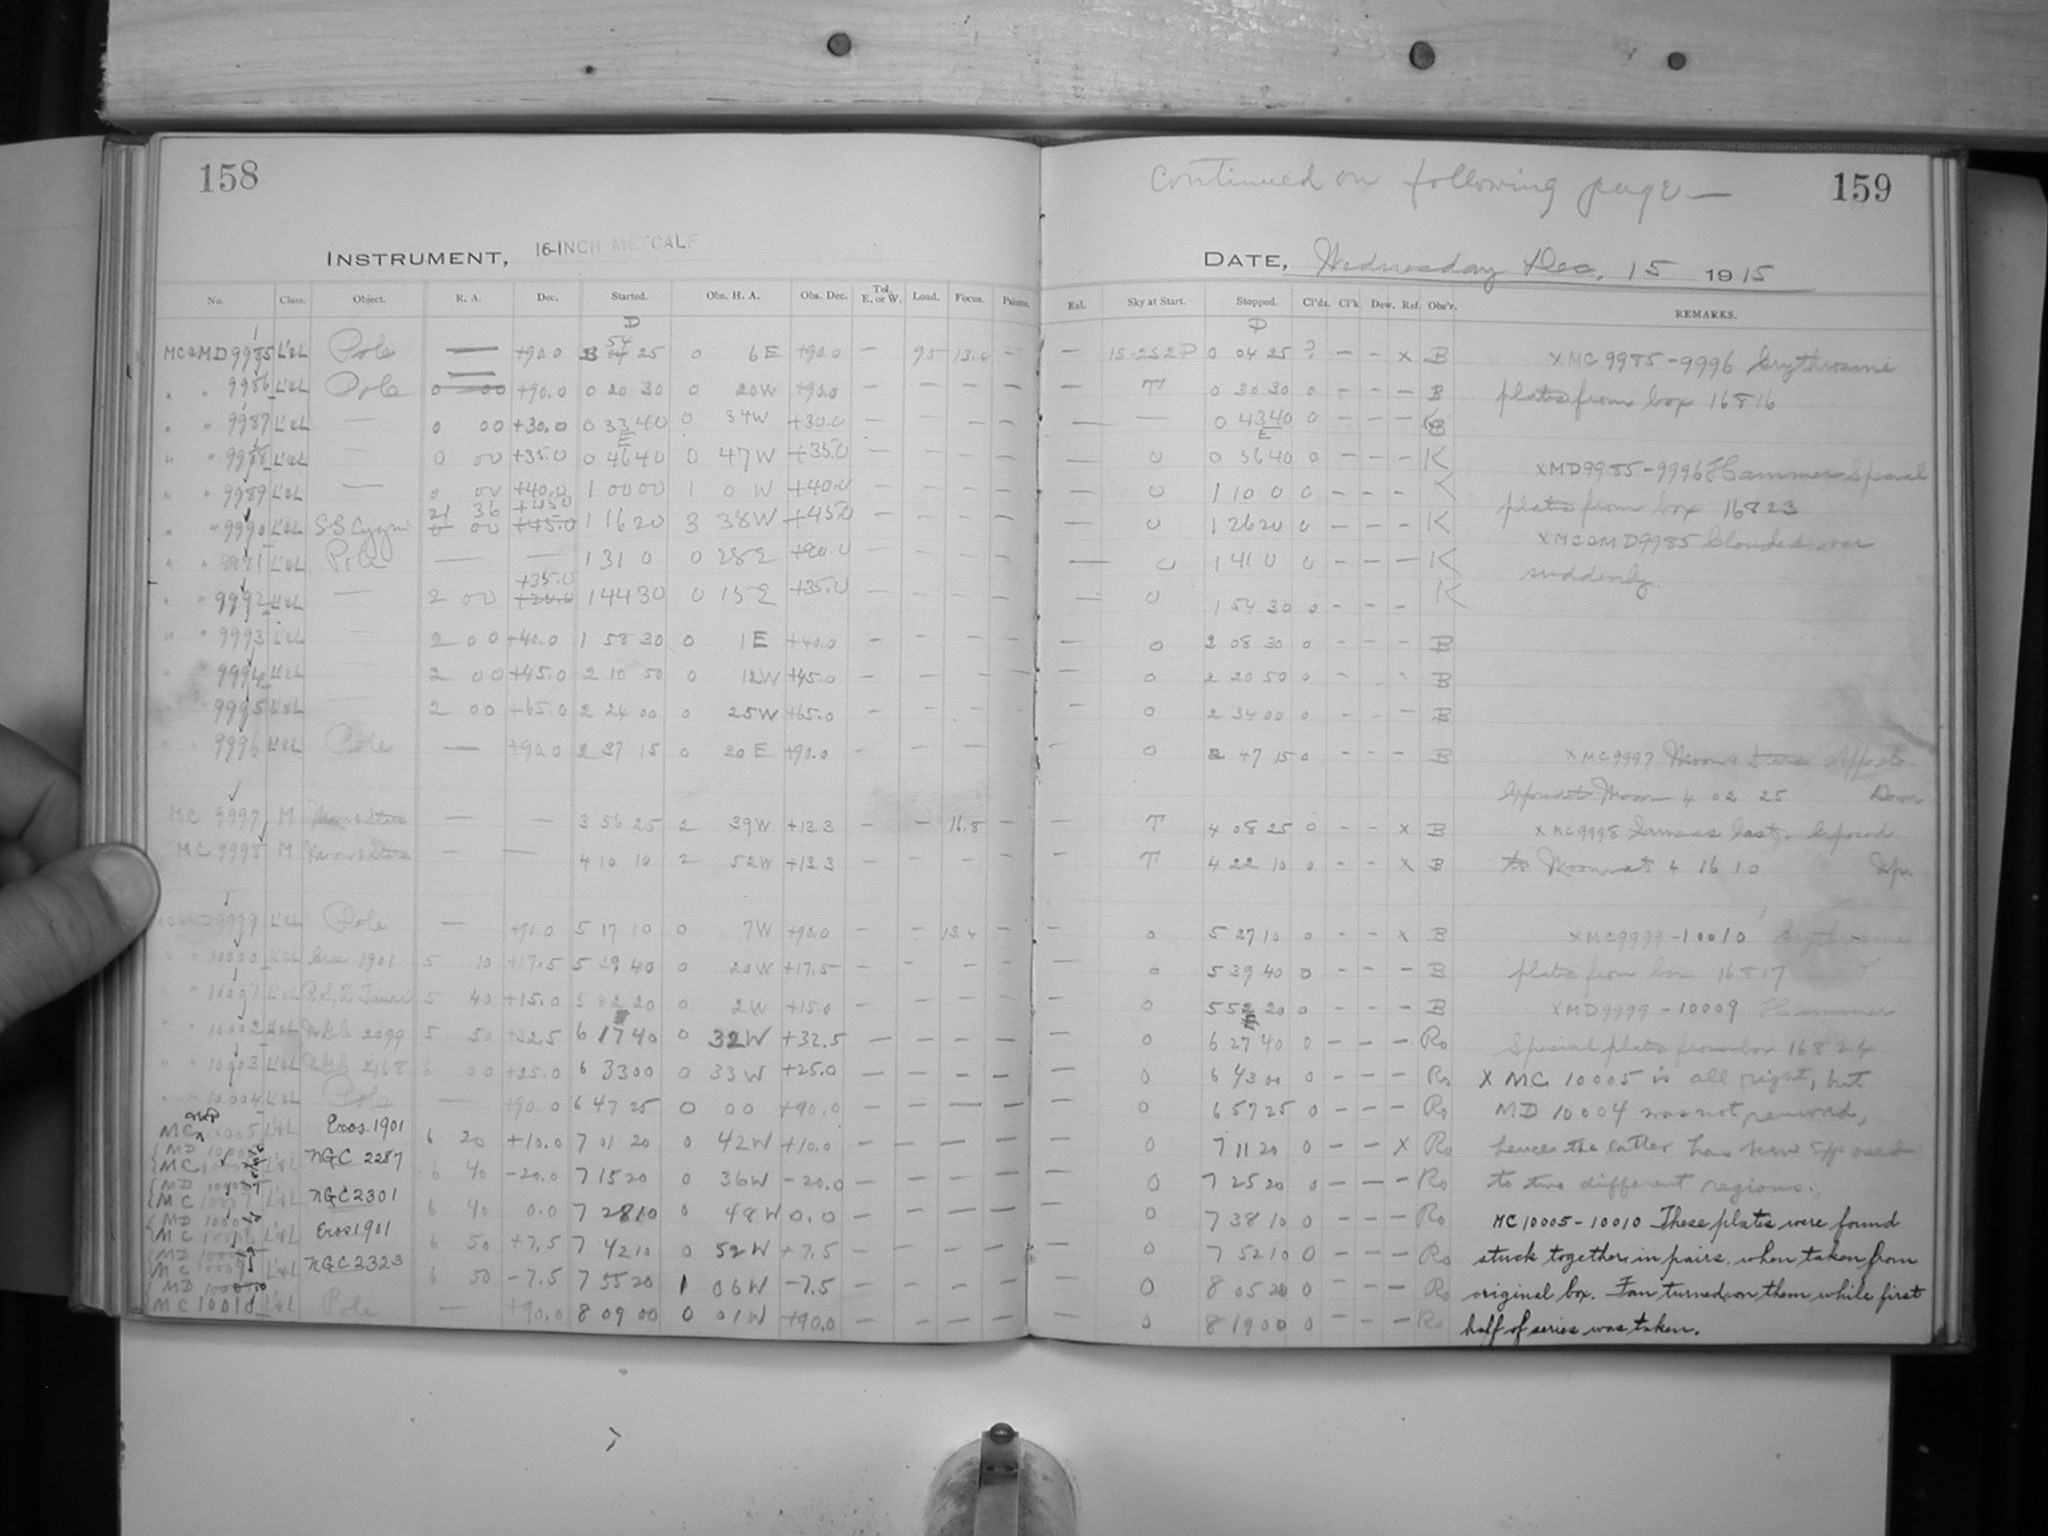 158
INSTRUMENT, 16-INCH METCALF
No. Class. Object. R. A. Dec. Started. Obs. H. A. Obs. Dec. Tel. E. or W. Load. Focus.
D
MC&MD 9985 L'&L Pole — +90.0 54 25 0 6 E +90.0 — 95 13.4 —
" " 9986 L'&L Pole 0 00 +90.0 0 20 30 0 20W +90.0
" " 9987 L'&L — 0 00 +30.0 0 33 40 0 34W +30.0 — — —
E
" " 9988 L'&L — 0 00 +35.0 0 46 40 0 47W +35.0 — — — —
" " 9989 L'&L — 0 00 +40.0 1 00 00 1 0 W +40.0 — — — —
21 36 +45.0
" " 9990 L'&L SS Cygni 0 00 +45.0 1 16 20 3 38W +45.0 — — — —
" " 9991 L'&L Pole — — 1 31 0 0 28E +90.0 — — — —
+35.0
" " 9992 L'&L — 2 00 1 44 30 0 15E +35.0 — — — —
" " 9993 L'&L — 2 00 +40.0 1 58 30 0 1 E +40.0 — — — —
" " 9994 L'&L 2 00 +45.0 2 10 50 0 12W +45.0 — — — —
" " 9995 L'&L 2 00 +65.0 2 24 00 0 25W +65.0 — — — —
" " 9996 L'&L Pole — +90.0 2 37 15 0 20 E +90.0 — — — —
MC 9997 M Moon & Stars — — 3 56 25 2 39W +13.3 — — 16.8 —
MC 9998 M Moon & Stars — — 4 10 10 2 52W +13.3 — — — —
MC&MD 9999 L'&L Pole — +90.0 5 17 10 0 7W +90.0 — — 13.4 —
" " 10000 L'&L Eros 1901 5 10 +17.5 5 29 40 0 20W +17.5 — — — —
" " 10001 L'&L 5 40 +15.0 5 42 20 0 2W +15.0 — — — —
" " 10002 L'&L NGC 2099 5 50 +32.5 6 17 40 0 32W +32.5 — — — —
" " 10003 L'&L NGC 2168 6 00 +25.0 6 33 00 0 33W +25.0 — — — —
" " 10004 L'&L Pole — +90.0 6 47 25 0 00 +90.0 — — — —
MC 10005 L'&L Eros 1901 6 20 +10.0 7 01 20 0 42W +10.0 — — — —
MD
MC L'&L NGC 2287 6 40 -20.0 7 15 20 0 36W -20.0 — — — —
MD
MC 10007 L'&L NGC 2301 6 40 0.0 7 28 10 0 48W 0.0 — — — —
MD
MC L'&L Eros 1901 6 50 +7.5 7 42 10 0 52W +7.5 — — — —
MD
MC 10009 L'&L NGC 2323 6 50 -7.5 7 55 20 1 06W -7.5 — — — —
MD
MC 10010 L'&L Pole — +90.0 8 09 00 0 01W +90.0 — — — —
Continued on following page —
159
DATE, Wednesday Dec. 15 1915
Sky at Start. Stopped. Cl'ds. Cl'k Dew. Ref. Obs'r. REMARKS.
D
— 15-25 2P 0 04 25 ? — — x B
— T 0 30 30 0 — — — B
— — 0 43 40 0 — — — B
E
— 0 0 56 40 0 — — — K
— 0 1 10 0 0 — — — K
— 0 1 26 20 0 — — — K
— 0 1 41 0 0 — — — K
— 0 1 54 30 0 — — — K
— 0 2 08 30 0 — — — B
— 0 2 20 50 0 — B
— 0 2 34 00 0 — — — B
— 0 2 47 15 0 — — — B
— T 4 08 25 0 — — x B
— T 4 22 10 0 — — x B
— 0 5 27 10 0 — — x B
— 0 5 39 40 0 — — — B
— 0 5 52 20 0 — — — B
— 0 6 27 40 0 — — — Ro
— 0 6 43 00 0 — — — Ro
— 0 6 57 25 0 — — — Ro
— 0 7 11 20 0 — — X Ro
— 0 7 25 20 0 — — — Ro
— 0 7 38 10 0 — — — Ro
— 0 7 52 10 0 — — — Ro
— 0 8 05 20 0 — — — Ro
— 0 8 19 00 0 — — — Ro
x MC 9985-9996 Erythrosine
plates from box 16816
x MD 9985-9996 Hammer Special
plates from box 16823
x MC&MD 9985 Clouded over
suddenly.
x MC 9997 Moon & Stars
Exposed to Moon 4 02 25
x MC 9998 Same as last. Exposed
to Moon at 4 16 10
x MC 9999-10010 Erythrosine
plates from box 16817
x MD 9999-10009 Hammer
Special plates from box 16824
X MC 10005 is all right, but
MD 10004 was not removed,
hence the latter has been exposed
to two different regions.
MC 10005-10010 These plates were found
stuck together, in pairs, when taken from
original box. Fan turned on them while first
half of series was taken.